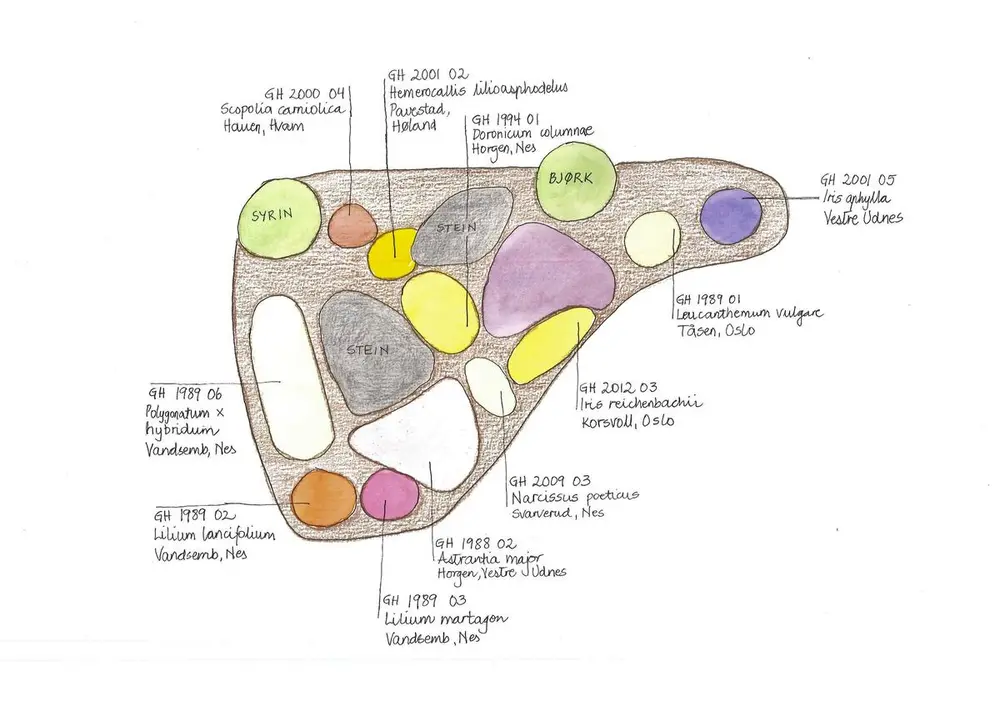 GH 2001 02
Hemerocallis lilioasphodelus
Pavestad,
Høland
GH 2000 04
Scopolia carniolica
Hauen, Hvam
GH 1994 01
Doronicum columnae
Horgen, Nes
BJØRK
GH 2001 05
Iris aphylla
Vestre Udnes
SYRIN
STEIN
GH 1989 01
Leucanthemum vulgare
Tåsen, Oslo
STEIN
GH 2012 03
Iris reichenbachii
Korsvoll, Oslo
GH 1989 06
Polygonatum x
hybridum
Vandsemb, Nes
GH 2009 03
Narcissus poeticus
Svarverud, Nes
GH 1989 02
Lilium lancifolium
Vandsemb, Nes
GH 1988 02
Astrantia major
Horgen, Vestre Udnes
GH 1989 03
Lilium martagon
Vandsemb, Nes